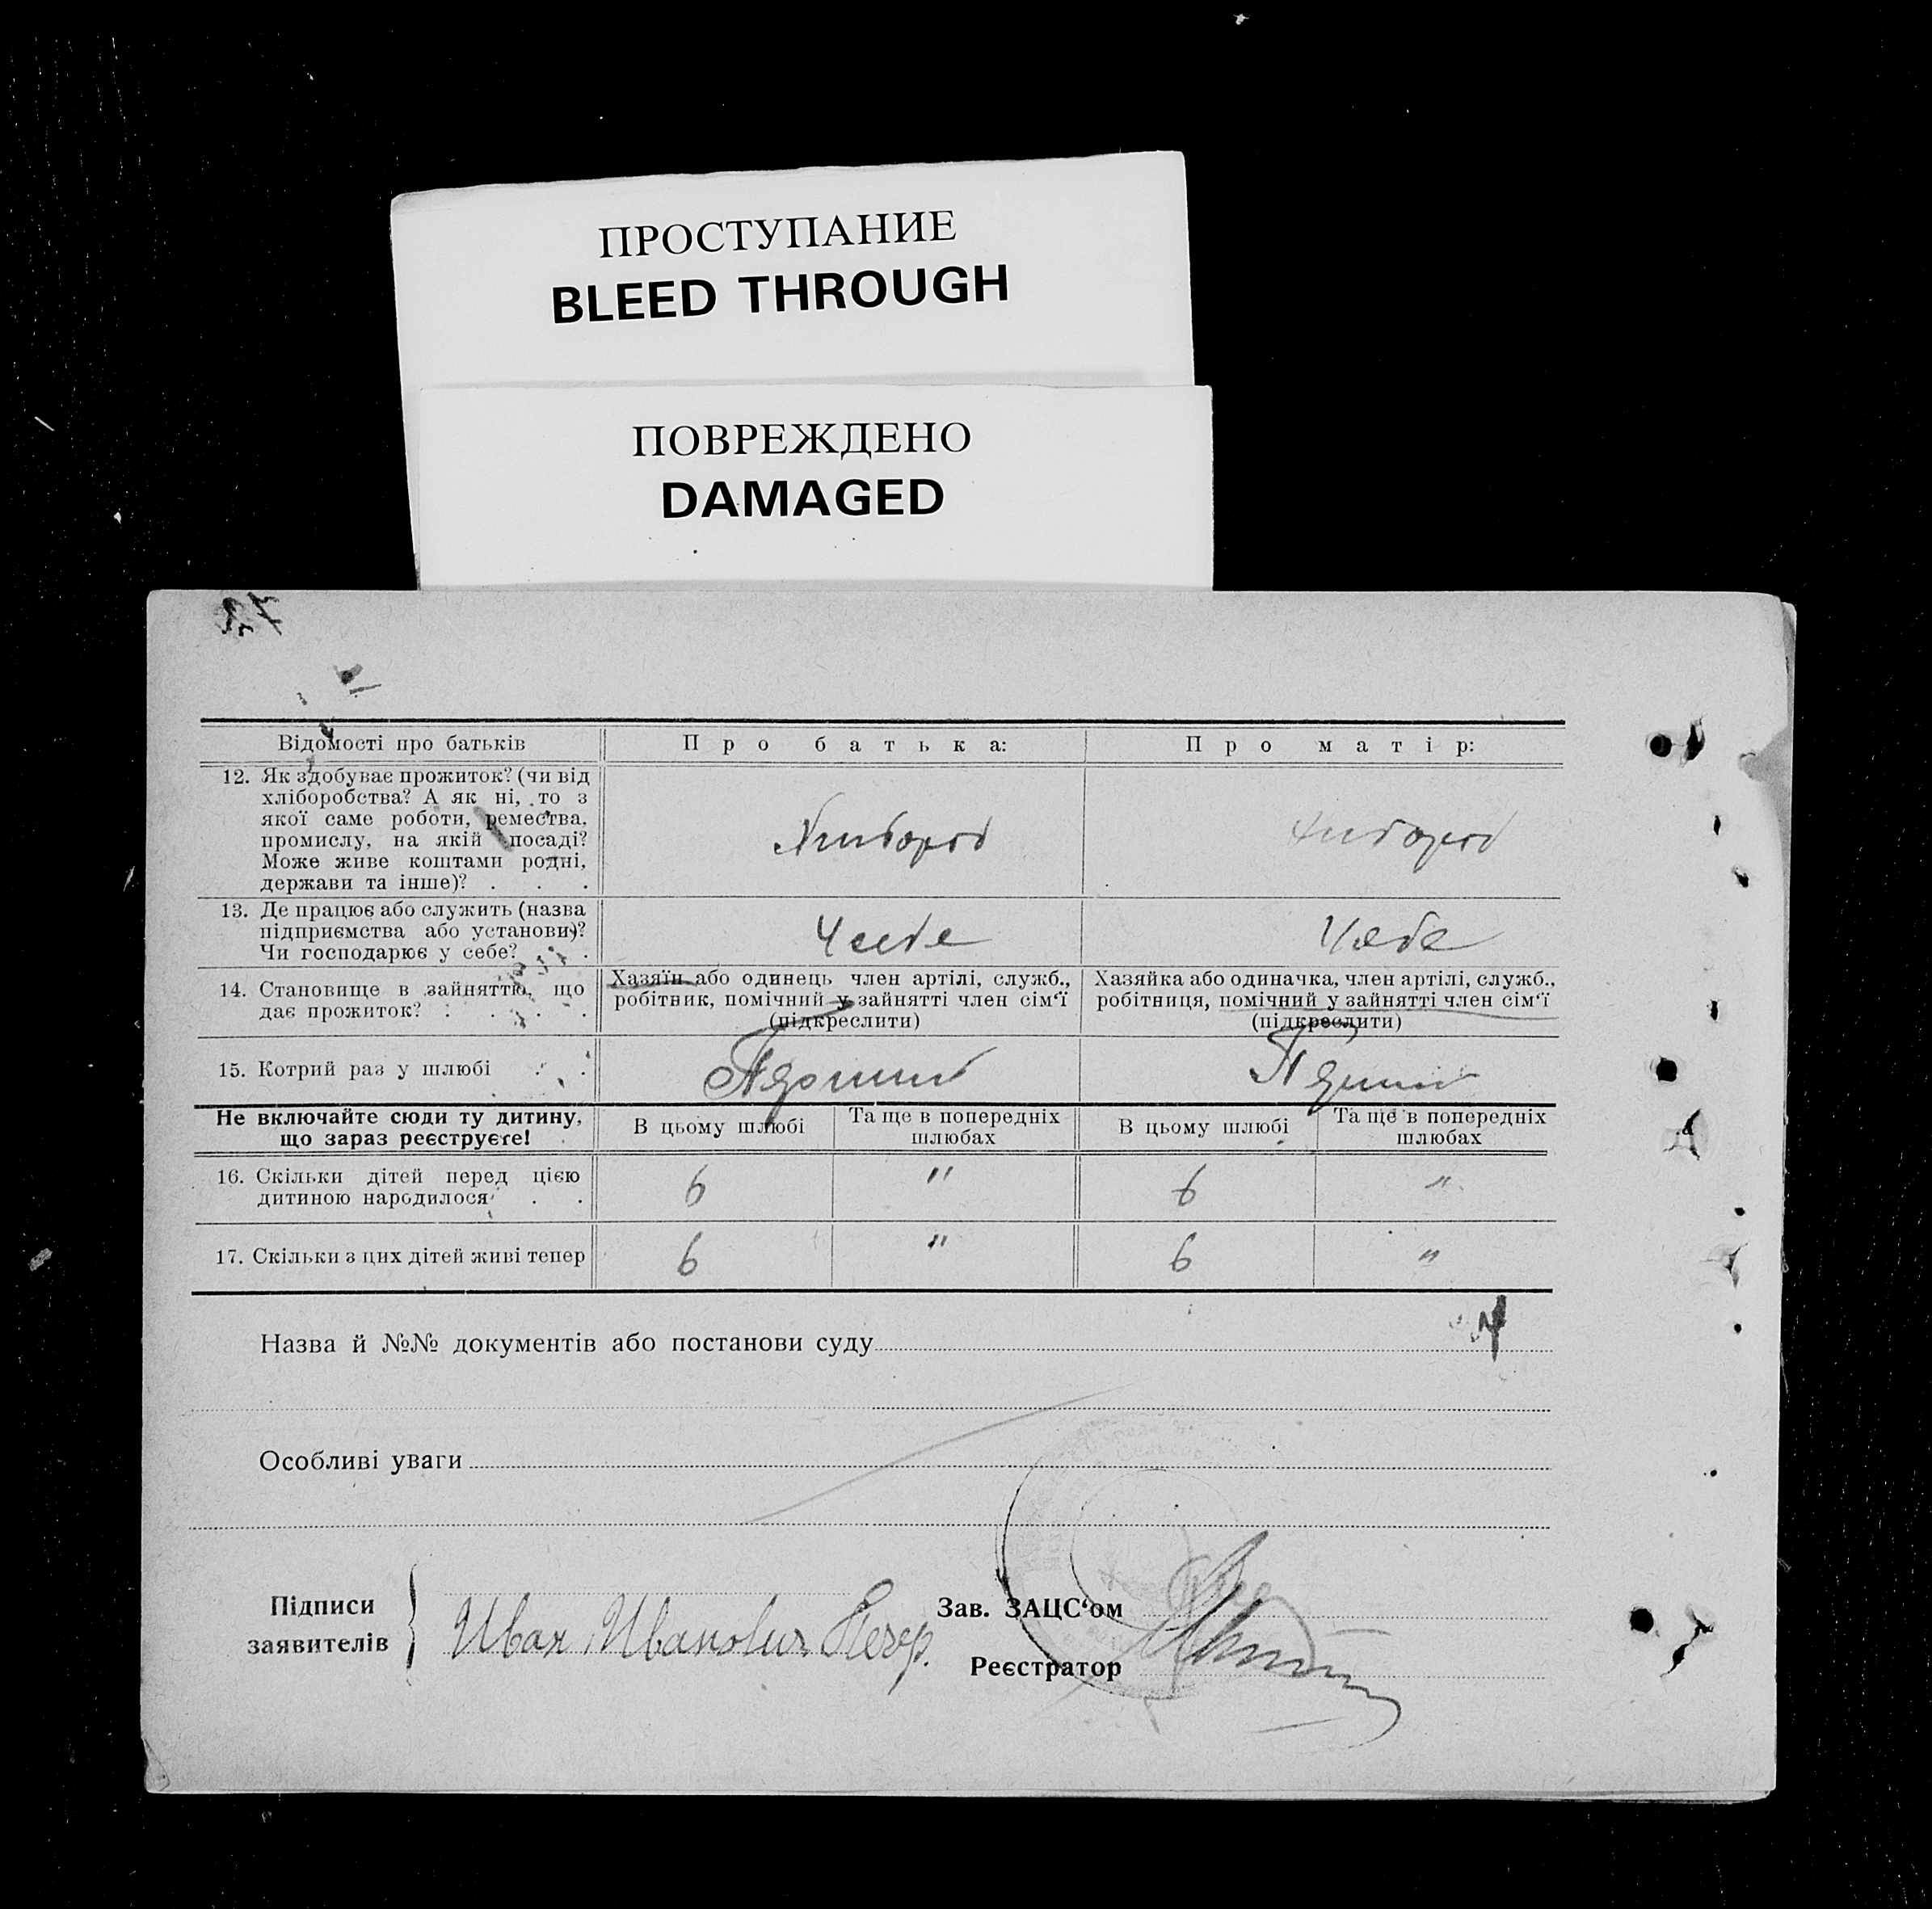 ПРОСТУПАНИЕ
BLEED THROUGH
ПОВРЕЖДЕНО
DAMAGED
Відомості про батьків
Про батька:
Про матір:
12. Як здобуває прожиток? (чи від
хліборобства? А як ні, то з
якої саме роботи, ремества,
промислу, на якій посаді?
Може живе коштами родні,
держави та інше)? . . .
13. Де працює або служить (назва
підприємства або установи)?
Чи господарює у себе? .
У себе
У себе
14. Становище в зайняттю, що
дає прожиток? . . . .
Хазяїн або одинець член артілі, служб.,
робітник, помічний у зайнятті член сім'ї
(підкреслити)
Хазяйка або одиначка, член артілі, служб.,
робітниця, помічний у зайнятті член сім'ї
(підкреслити)
15. Котрий раз у шлюбі . .
Не включайте сюди ту дитину,
що зараз реєструєте!
В цьому шлюбі
Та ще в попередніх
шлюбах
В цьому шлюбі
Та ще в попередніх
шлюбах
16. Скільки дітей перед цією
дитиною народилося . .
6 " 6 "
17. Скільки з цих дітей живі тепер
6 " 6 "
Назва й №№ документів або постанови суду
Особливі уваги
Підписи
заявителів
Иван Иванович
Зав. ЗАЦС'ом
Реєстратор